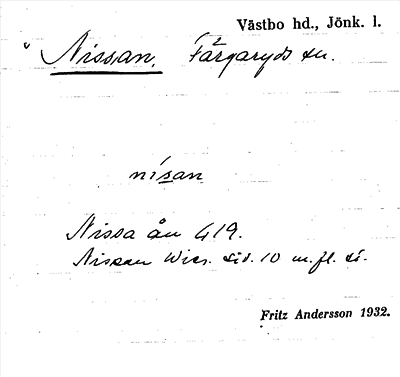 Västbo hd., Jönk. l.
Nissan. Färgaryds sn.
nísan
Nissa ån G19.
Nissan Wies. sid. 10 m.fl. st.
Fritz Andersson 1932.